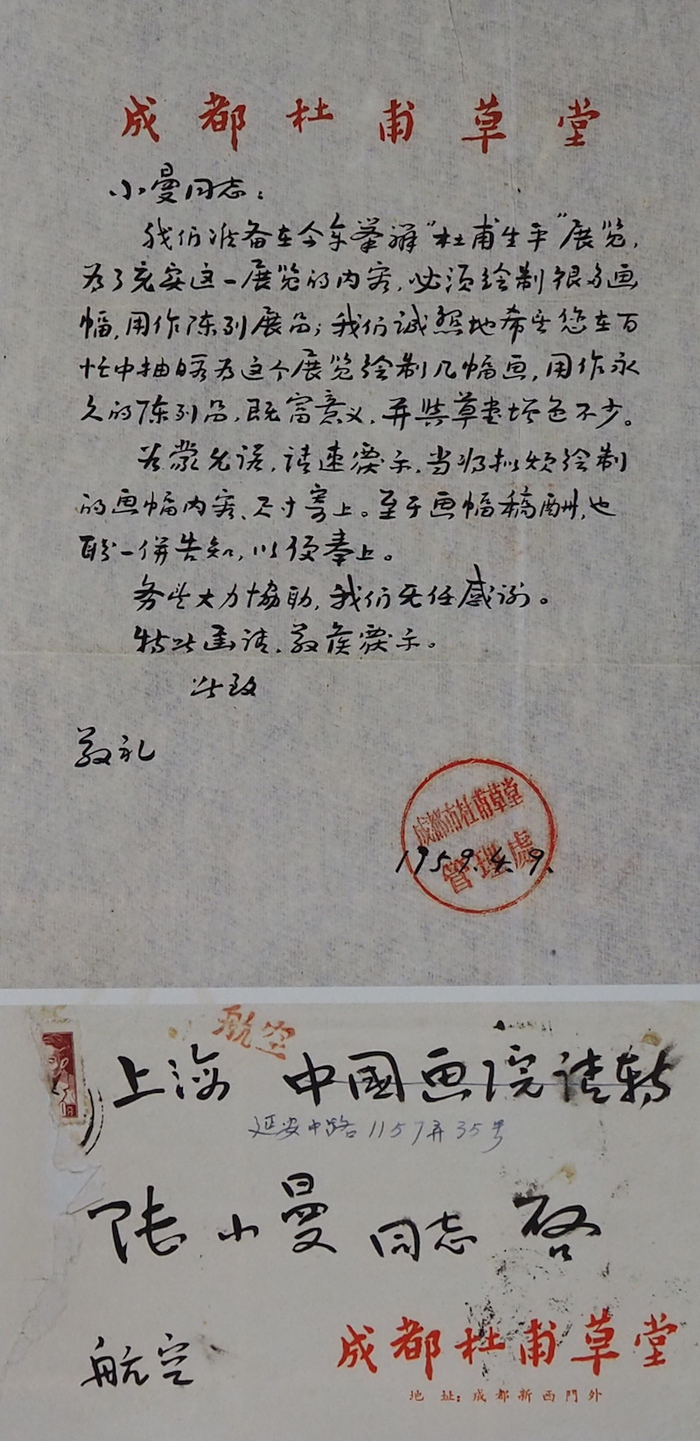 成都杜甫草堂
小曼同志：
我们准备在今年举办“杜甫生平”展览，
为了充实这一展览的内容，必须绘制很多画
幅，用作陈列展品；我们诚恳地希望您在百
忙中抽暇为这个展览绘制几幅画，用作永
久的陈列品，既富意义，并为草堂增色不少。
如蒙允诺，请速覆示，当将拟烦绘制
的画幅内容、尺寸寄上。至于画幅稿酬，也
盼一併告知，以便奉上。
多些大力协助，我们无任感谢。
特此函请，敬候覆示。
此致
敬礼
成都市杜甫草堂
管理處
1959.4.9.
航空
上海 中國画院请转
延安中路1157弄35号
张小曼同志 啓
航空
成都杜甫草堂
地址：成都新西門外